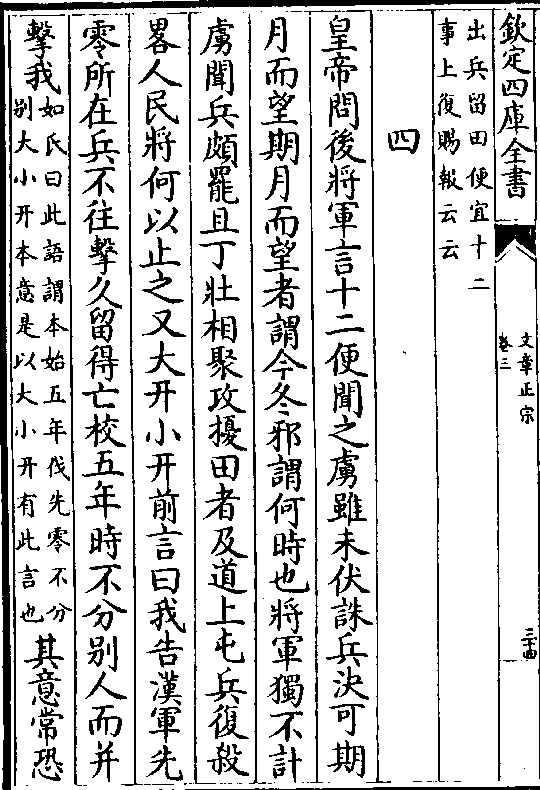 欽定四庫全書
文章正宗
卷三
三十四
出兵留田便宜十二
事上復賜報云云
四
皇帝問後將軍言十二便聞之虜雖未伏誅兵決可期
月而望期月而望者謂今冬邪謂何時也將軍獨不計
虜聞兵頗罷且丁壯相聚攻擾田者及道上屯兵復殺
畧人民將何以止之又大幵小幵前言曰我告漢軍先
零所在兵不往擊久留得亡校五年時不分别人而并
擊我如氏曰此語謂本始五年伐先零不分
别大小幵本意是以大小幵有此言也其意常恐